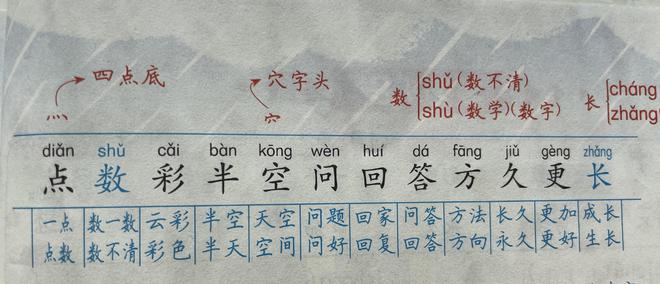 四点底
灬
穴字头
穴
数 shǔ（数不清）
shù（数学）（数字）
长 cháng
zhǎng
diǎn shǔ cǎi bàn kōng wèn huí dá fāng jiǔ gèng zhǎng
点 数 彩 半 空 问 回 答 方 久 更 长
一点 数一数 云彩 半空 天空 问题 回家 问答 方法 长久 更加 成长
点数 数不清 彩色 半天 空间 问好 回复 回答 方向 永久 更好 生长